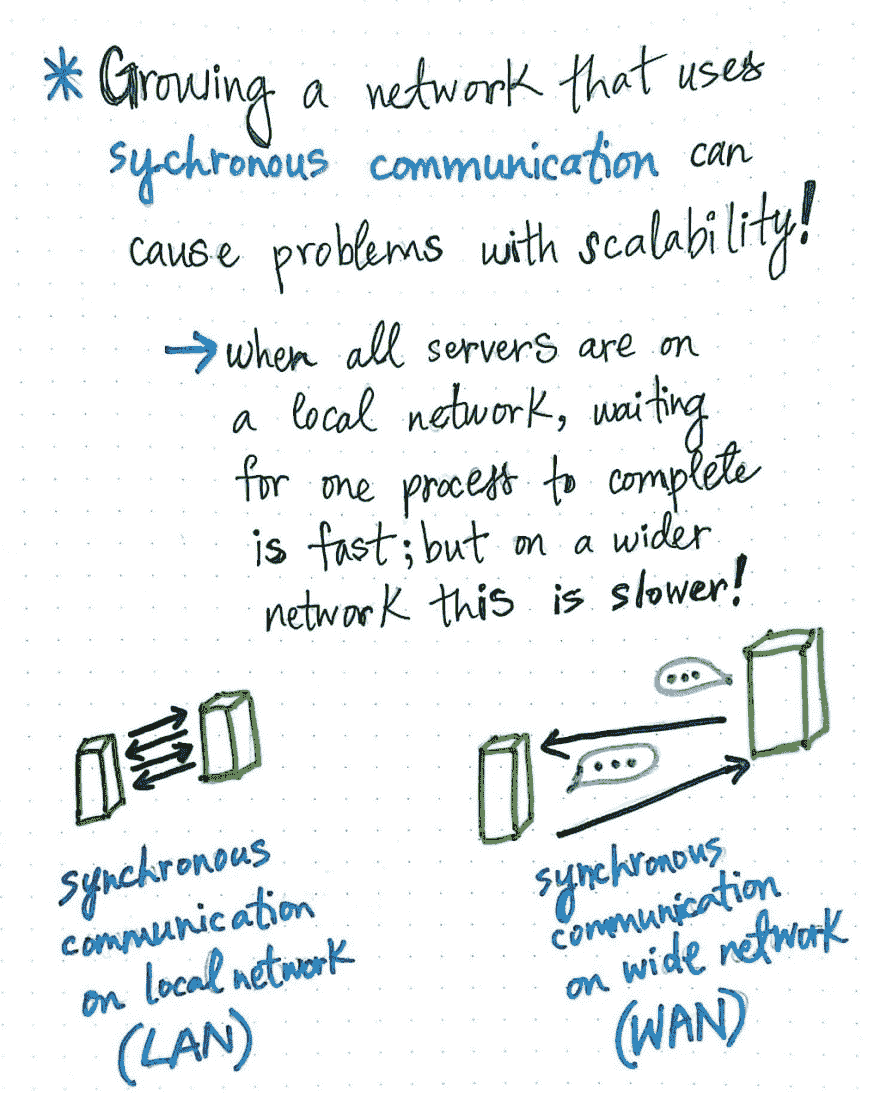 * Growing a network that uses
sychronous communication can
cause problems with scalability!
→ when all servers are on
a local network, waiting
for one process to complete
is fast; but on a wider
network this is slower!
...
...
synchronous
communication
on local network
(LAN)
synchronous
communication
on wide network
(WAN)